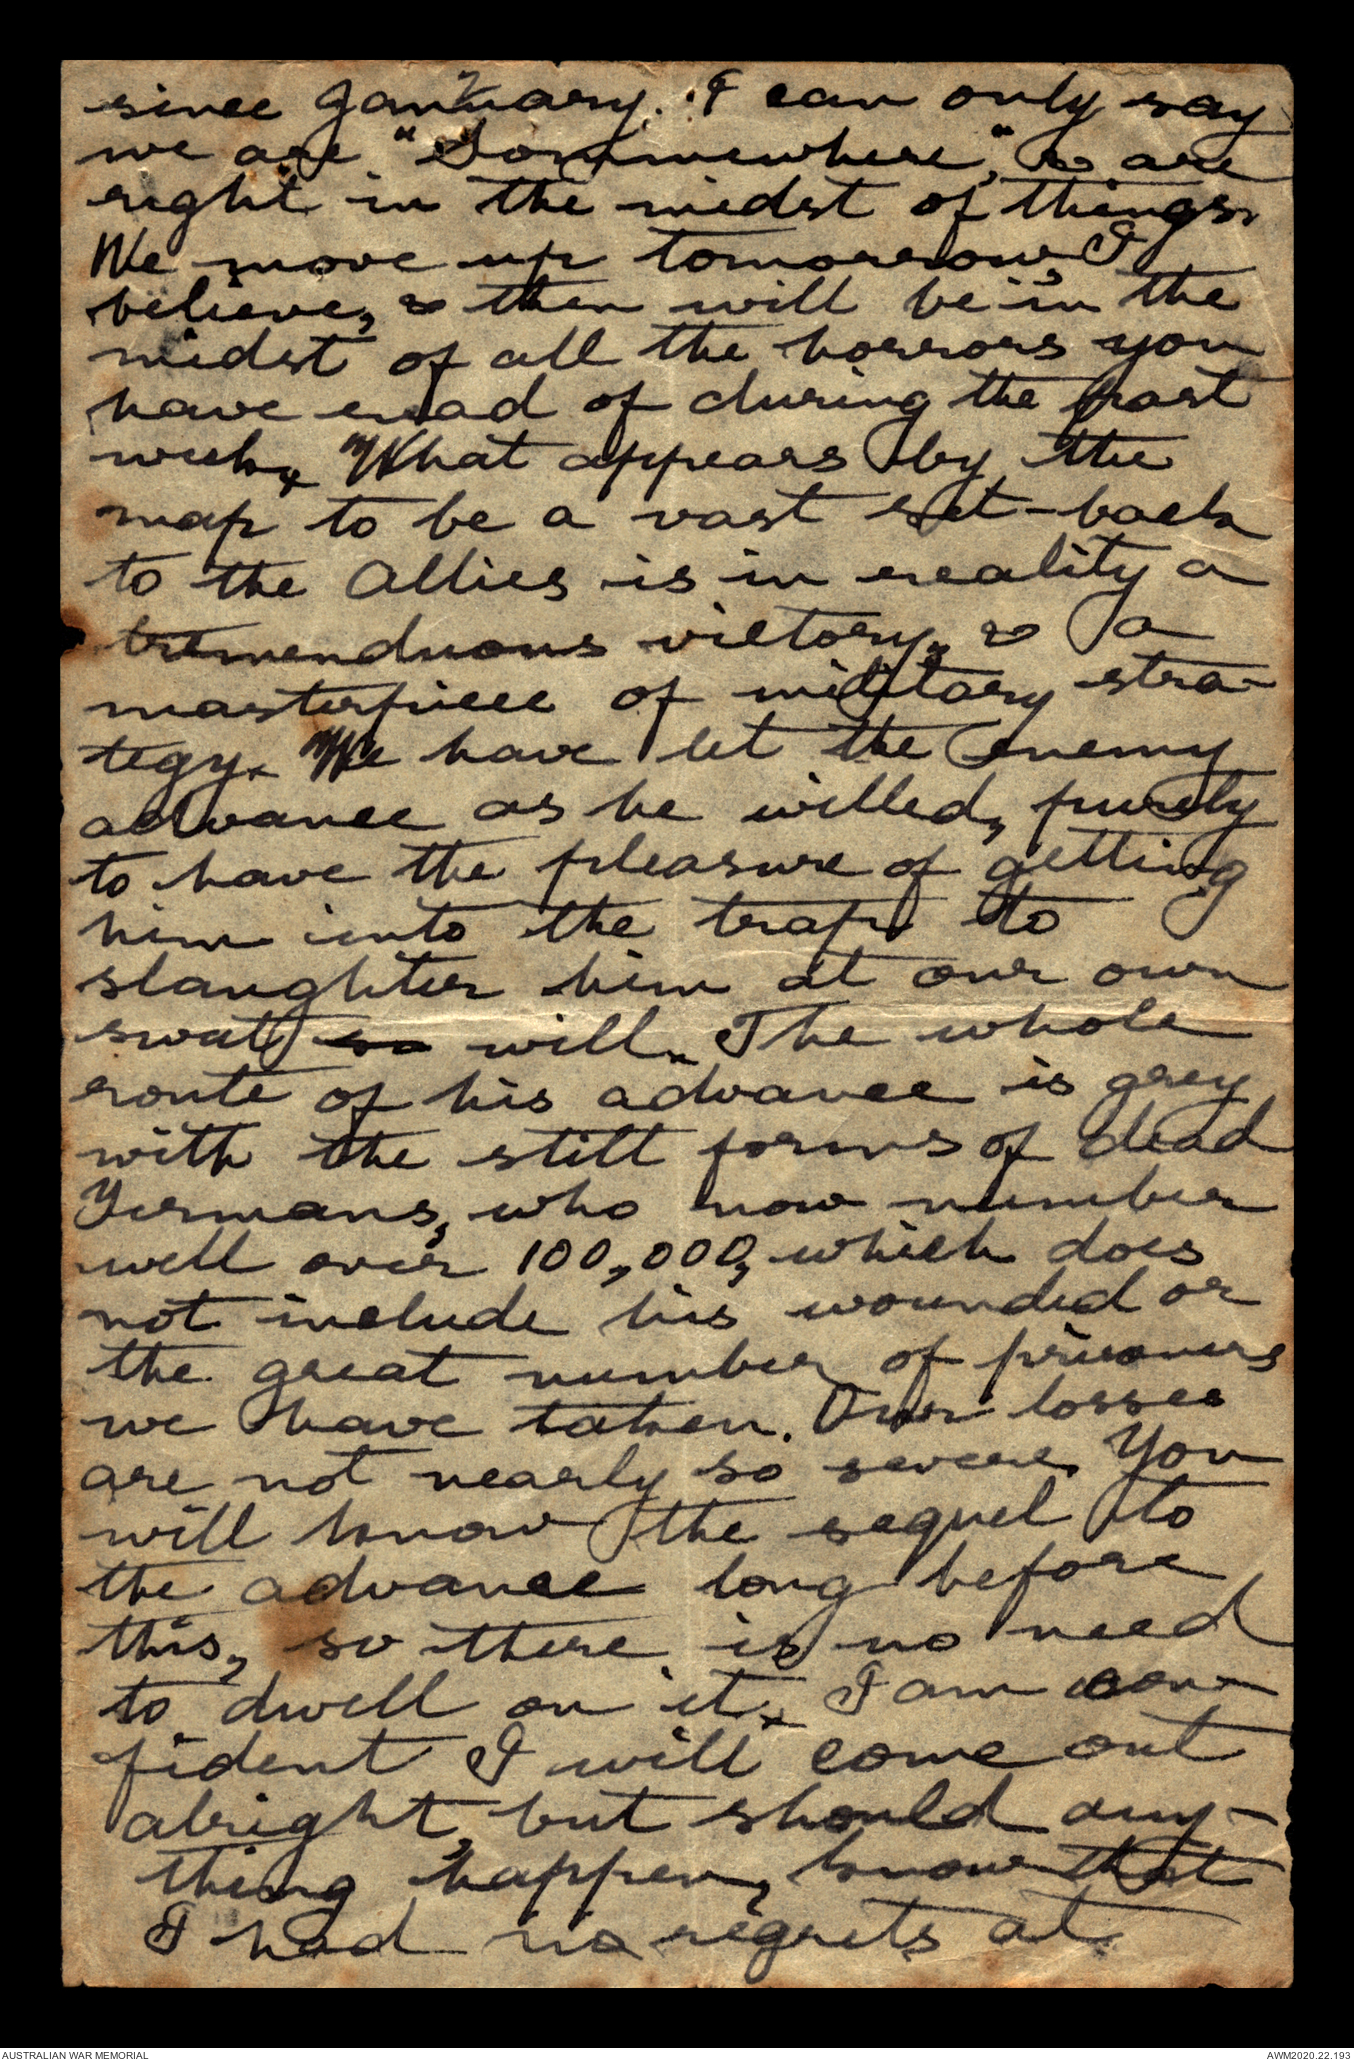 since January. I can only say
we are "Sommewhere," & are
right in the midst of things.
We move up tomorrow, I
believe, & then will be in the
midst of all the horrors you
have read of during the past
week. What appears by the
map to be a vast set-back
to the Allies is in reality a
tremenduous victory, & a
masterpiece of military stra-
tegy. We have let the enemy
advance as he willed, purely
to have the pleasure of getting
him into the trap to
slaughter him at our own
swat so will. The whole
route of his advance is grey
with the still forms of dead
Germans, who now number
well over 100,000, which does
not include his wounded or
the great number of prisoners
we have taken. Our losses
are not nearly so severe. You
will know the sequel to
the advance long before
this, so there is no need
to dwell on it. I am con-
fident I will come out
alright, but should any-
thing happen, know that
I had no regrets at
AUSTRALIAN WAR MEMORIAL
AWM2020.22.193